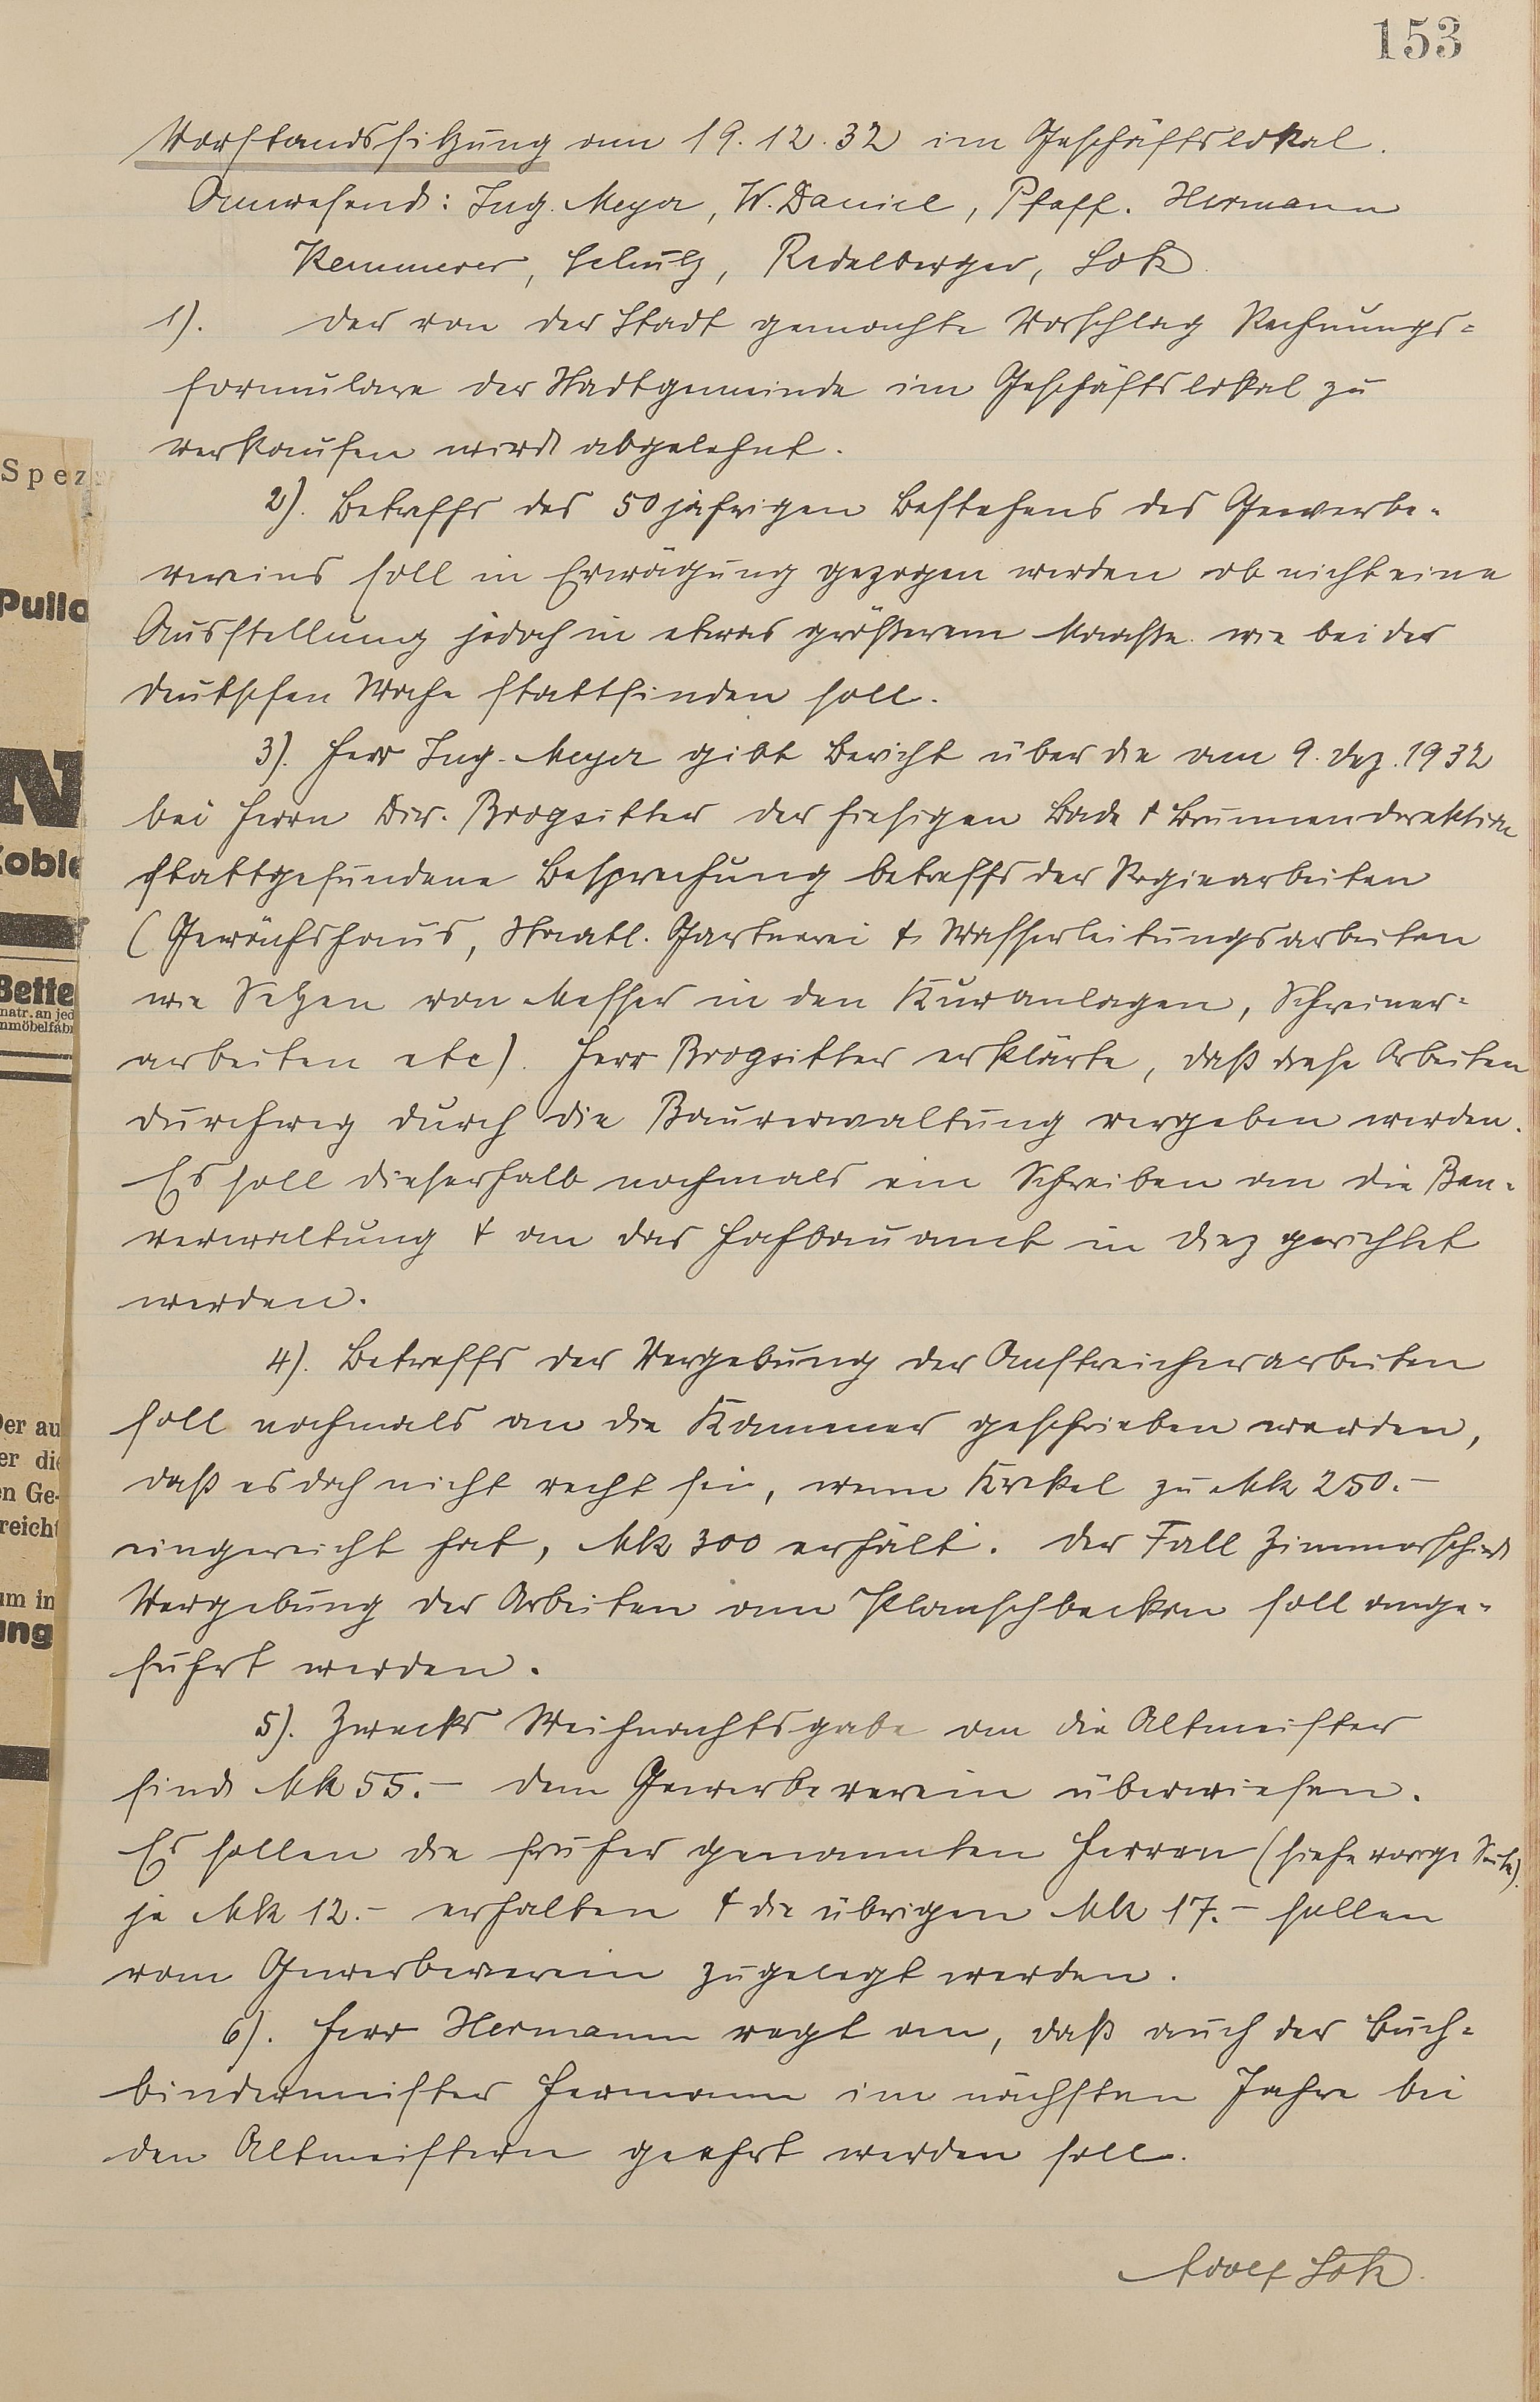 153
Vorstandssitzung am 19.12.32 im Geschäftslokal.
Anwesend: Ing. Meyer, W. Daniel, Pfaff. Hermann
Kemmerer, Schulz, Redelberger, Lotz.
1). Der von der Stadt gemachte Vorschlag Rechnungs-
formulare der Stadtgemeinde im Geschäftslokal zu
verkaufen wird abgelehnt.
2). Betreffs des 50 jährigen Bestehens des Gewerbe-
vereins soll in Erwägung gezogen werden ob nicht eine
Ausstellung jedoch in etwas größerem Maaße wie bei der
deutschen Woche stattfinden soll.
3). Herr Ing. Meyer gibt Bericht über die am 9. Dez. 1932
bei Herrn Dir. Brogsitter der hiesigen Bade & Brunnendirektion
stattgefundene Besprechung betreffs der Regiearbeiten
(Gewächshaus, Staatl. Gärtnerei & Wasserleitungsarbeiten
wie Setzen von Messer in den Kuranlagen, Schreiner-
arbeiten etc). Herr Brogsitter erklärte, daß diese Arbeiten
durchweg durch die Bauverwaltung vergeben werden.
Es soll dieserhalb nochmals ein Schreiben an die Bau-
verwaltung & an das Hochbauamt in Diez gerichtet
werden.
4). Betreffs der Vergebung der Anstreicherarbeiten
soll nochmals an die Kammer geschrieben werden,
daß es doch nicht recht sei, wenn zu Mk 250.-
eingereicht hat, Mk 300 erhält. Der Fall Zimmerschied
Vergebung der Arbeiten am Planschbecken soll ange-
führt werden.
5). Zwecks Weihnachtsgabe an die Altmeister
sind Mk 55.- dem Gewerbeverein überwiesen.
Es sollen die früher genannten Herren (siehe vorige Seite)
je Mk 12.- erhalten & die übrigen Mk 17.- sollen
vom Gewerbeverein zugelegt werden.
6). Herr Hermann regt an, daß auch der Buch-
bindermeister Hermann im nächsten Jahre bei
den Altmeistern geehrt werden soll.
Adolf Lotz.
Spez
Pullo
N
Coble
Bette
natr. an jed
nmöbelfabr
Der au
er die
en Ge-
reicht
um in
ung